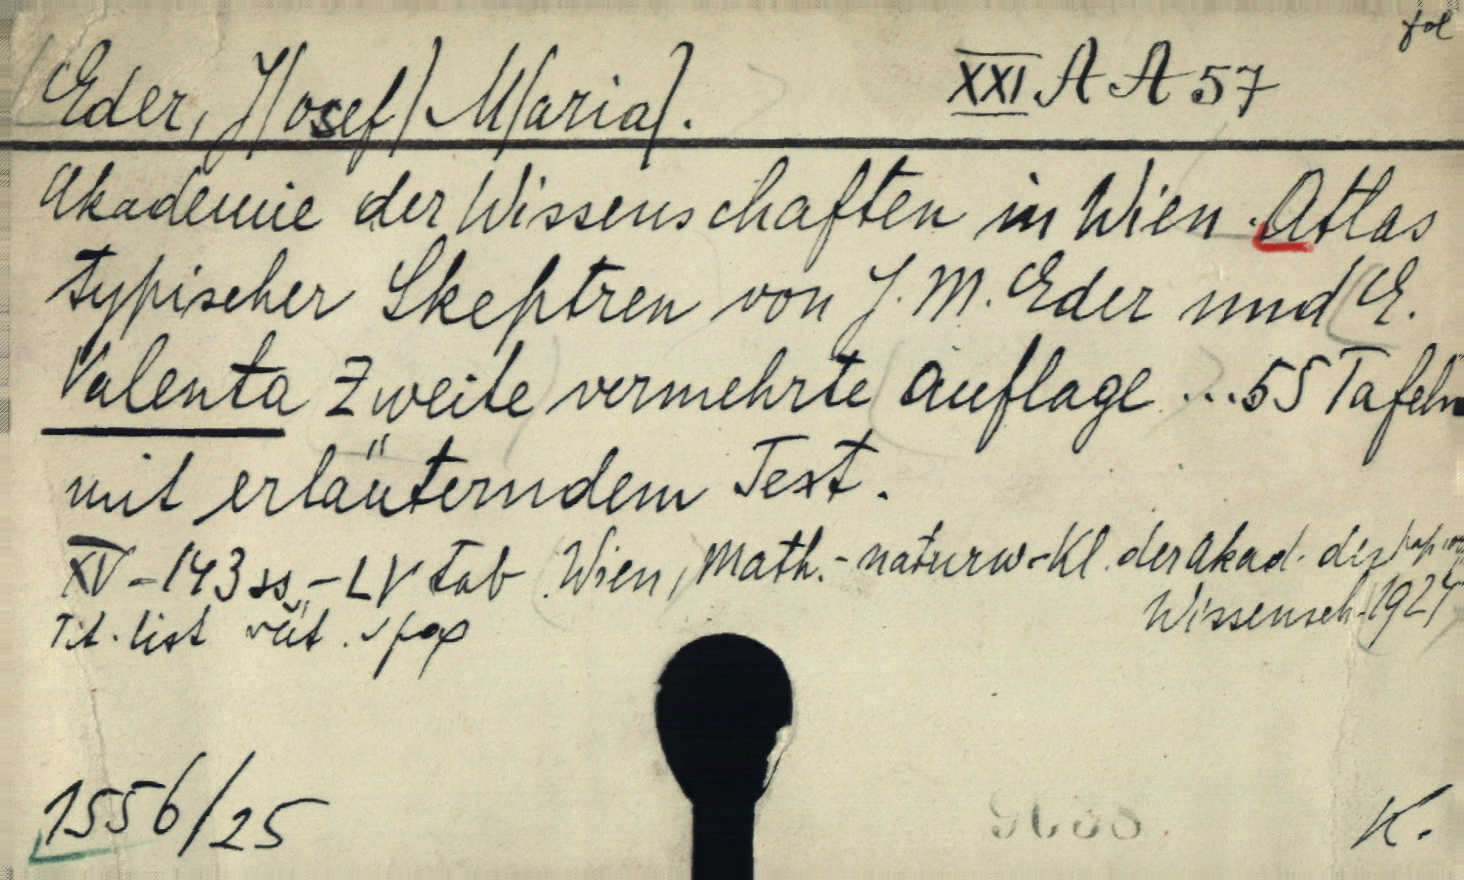 fol
Eder, J[osef] M[aria]. XXI A A 57
Akademie der Wissenschaften in Wien. Atlas
typischer Skeptren von J. M. Eder und E.
Valenta Zweite vermehrte Auflage ... 55 Tafeln
mit erläuterndem Text.
XV-143 ss.-LV tab Wien, Math.-naturw-Kl. der Akad. der
Wissensch. 1924
Tit. list
1556/25 K.